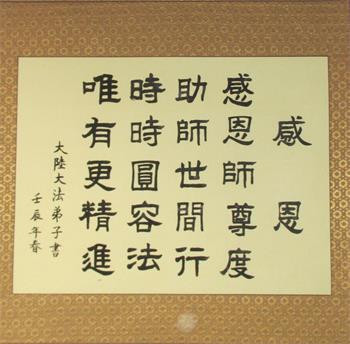 感恩
感恩師尊度
助師世間行
時時圓容法
唯有更精進
大陸大法弟子書
壬辰年春